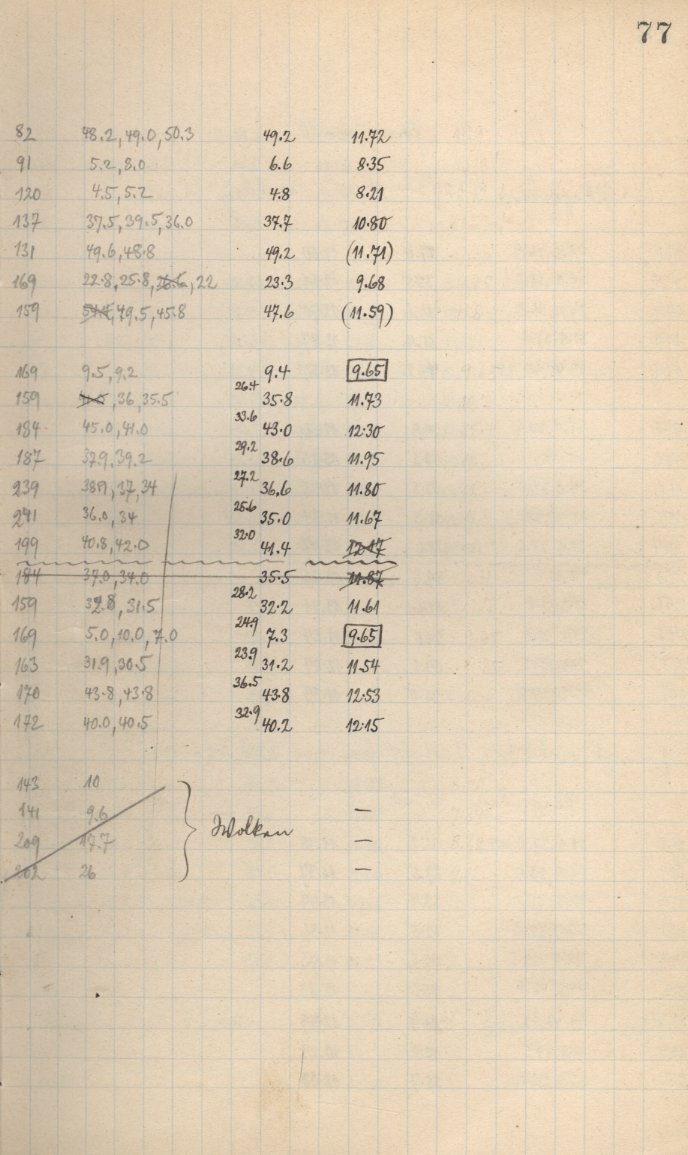 77
82 48.2, 49.0, 50.3 49.2 11.72
91 5.2, 8.0 6.6 8.35
120 4.5, 5.2 4.8 8.21
137 37.5, 39.5, 36.0 37.7 10.80
131 49.6, 48.8 49.2 (11.71)
169 22.8, 25.8, 22 23.3 9.68
159 49.5, 45.8 47.6 (11.59)
169 9.5, 9.2 9.4 9.65
159 36, 35.5 26.4 35.8 11.73
184 45.0, 41.0 33.6 43.0 12.30
187 37.9, 39.2 29.2 38.6 11.95
239 38.9, 37, 34 27.2 36.6 11.80
241 36.0, 34 25.6 35.0 11.67
199 40.8, 42.0 32.0 41.4 12.17
184 37.0, 34.0 35.5 11.87
159 32.8, 31.5 28.2 32.2 11.61
169 5.0, 10.0, 7.0 24.9 7.3 9.65
163 31.9, 30.5 23.9 31.2 11.54
170 43.8, 43.8 36.5 43.8 12.53
172 40.0, 40.5 32.9 40.2 12.15
143 10
141 9.6 —
Wolken
209 17.7 —
202 26 —